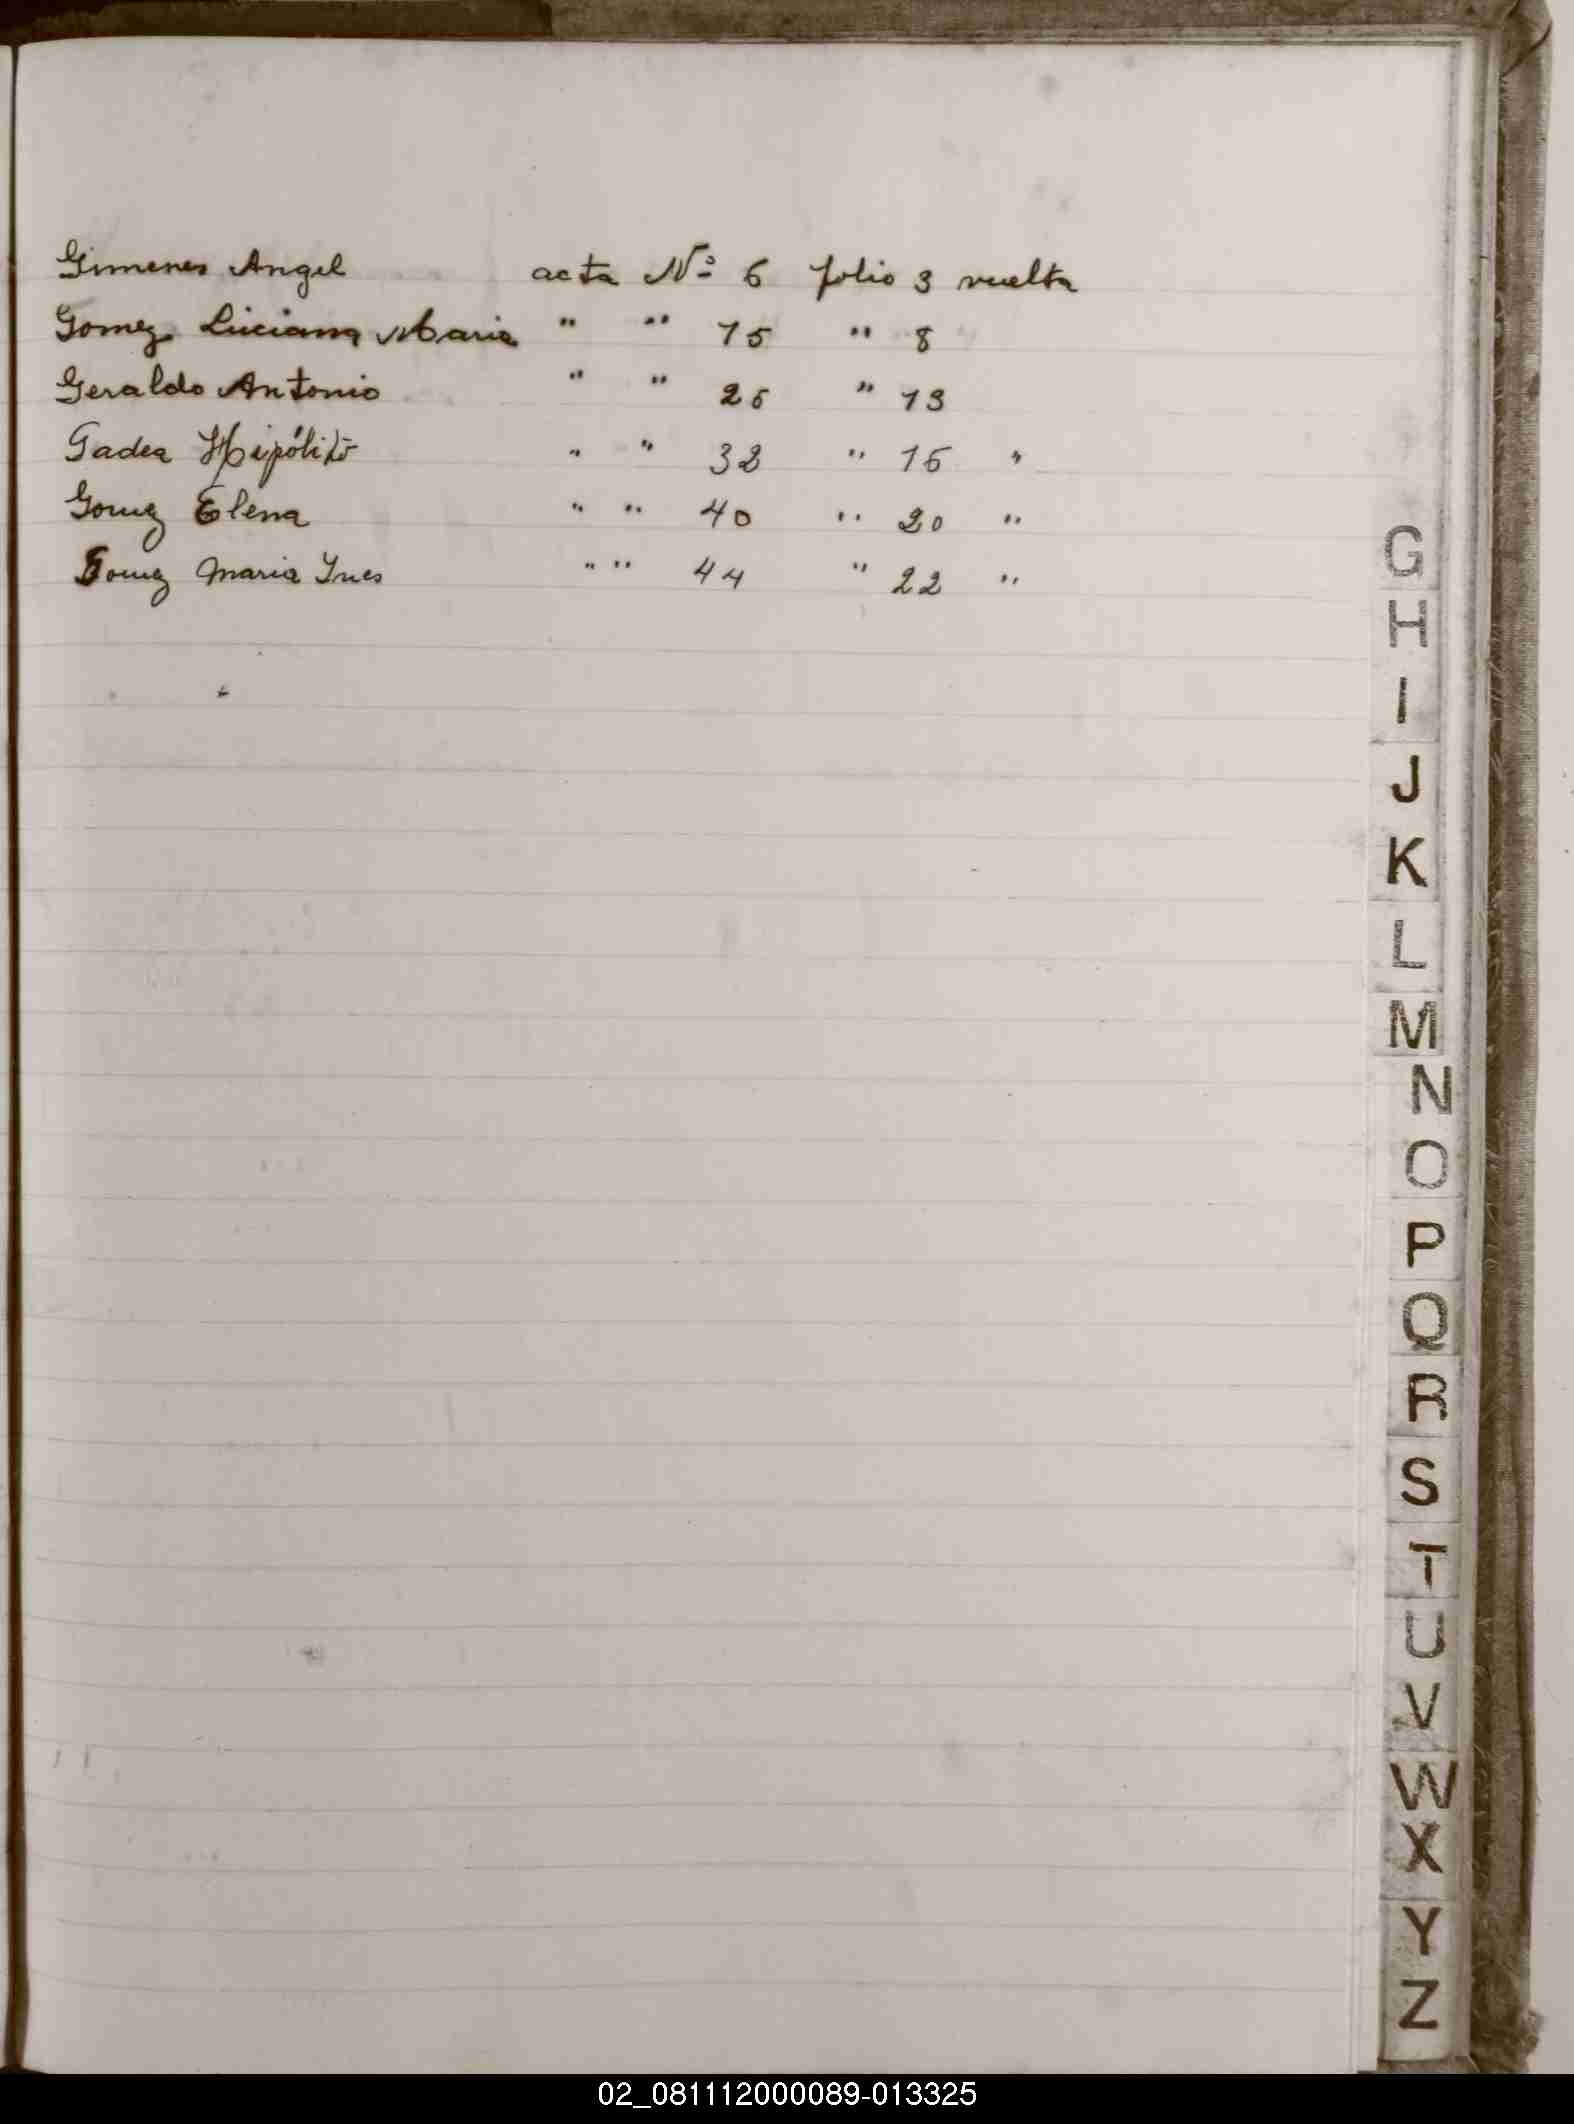 Gimenes Angel acta Nº 6 folio 3 vuelta
Gomez Luciana Maria " " 15 " 8
Geraldo Antonio " " 25 " 13
Gadea Hipólito " " 32 " 16 "
Gomez Elena " " 40 " 20 "
Gomez Maria Ines " " 44 " 22 "
G
H
I
J
K
L
M
N
O
P
Q
R
S
T
U
V
W
X
Y
Z
02_081112000089-013325